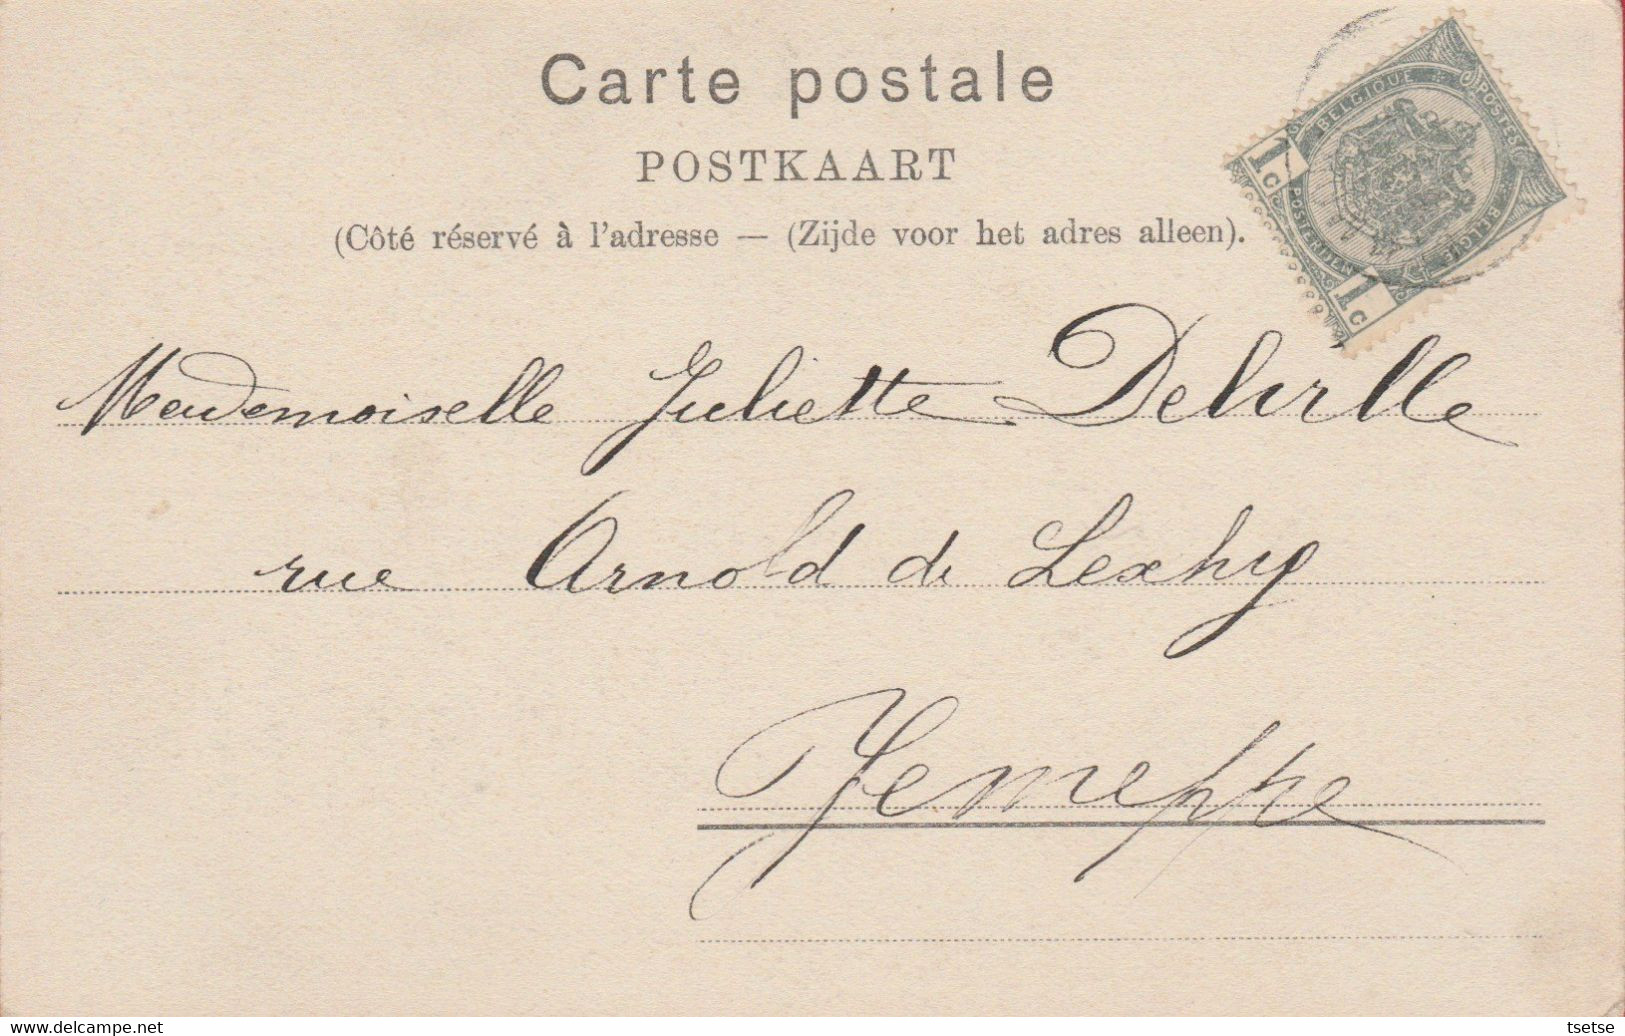 Carte postale
POSTKAART
(Côté réservé à l'adresse — (Zijde voor het adres alleen).
POSTES BELGIQUE
POSTERIJEN BELGIE
1 c
1 c
Mademoiselle Juliette
rue Arnold de Lexhy
Jemeppe
delcampe.net
tsetse